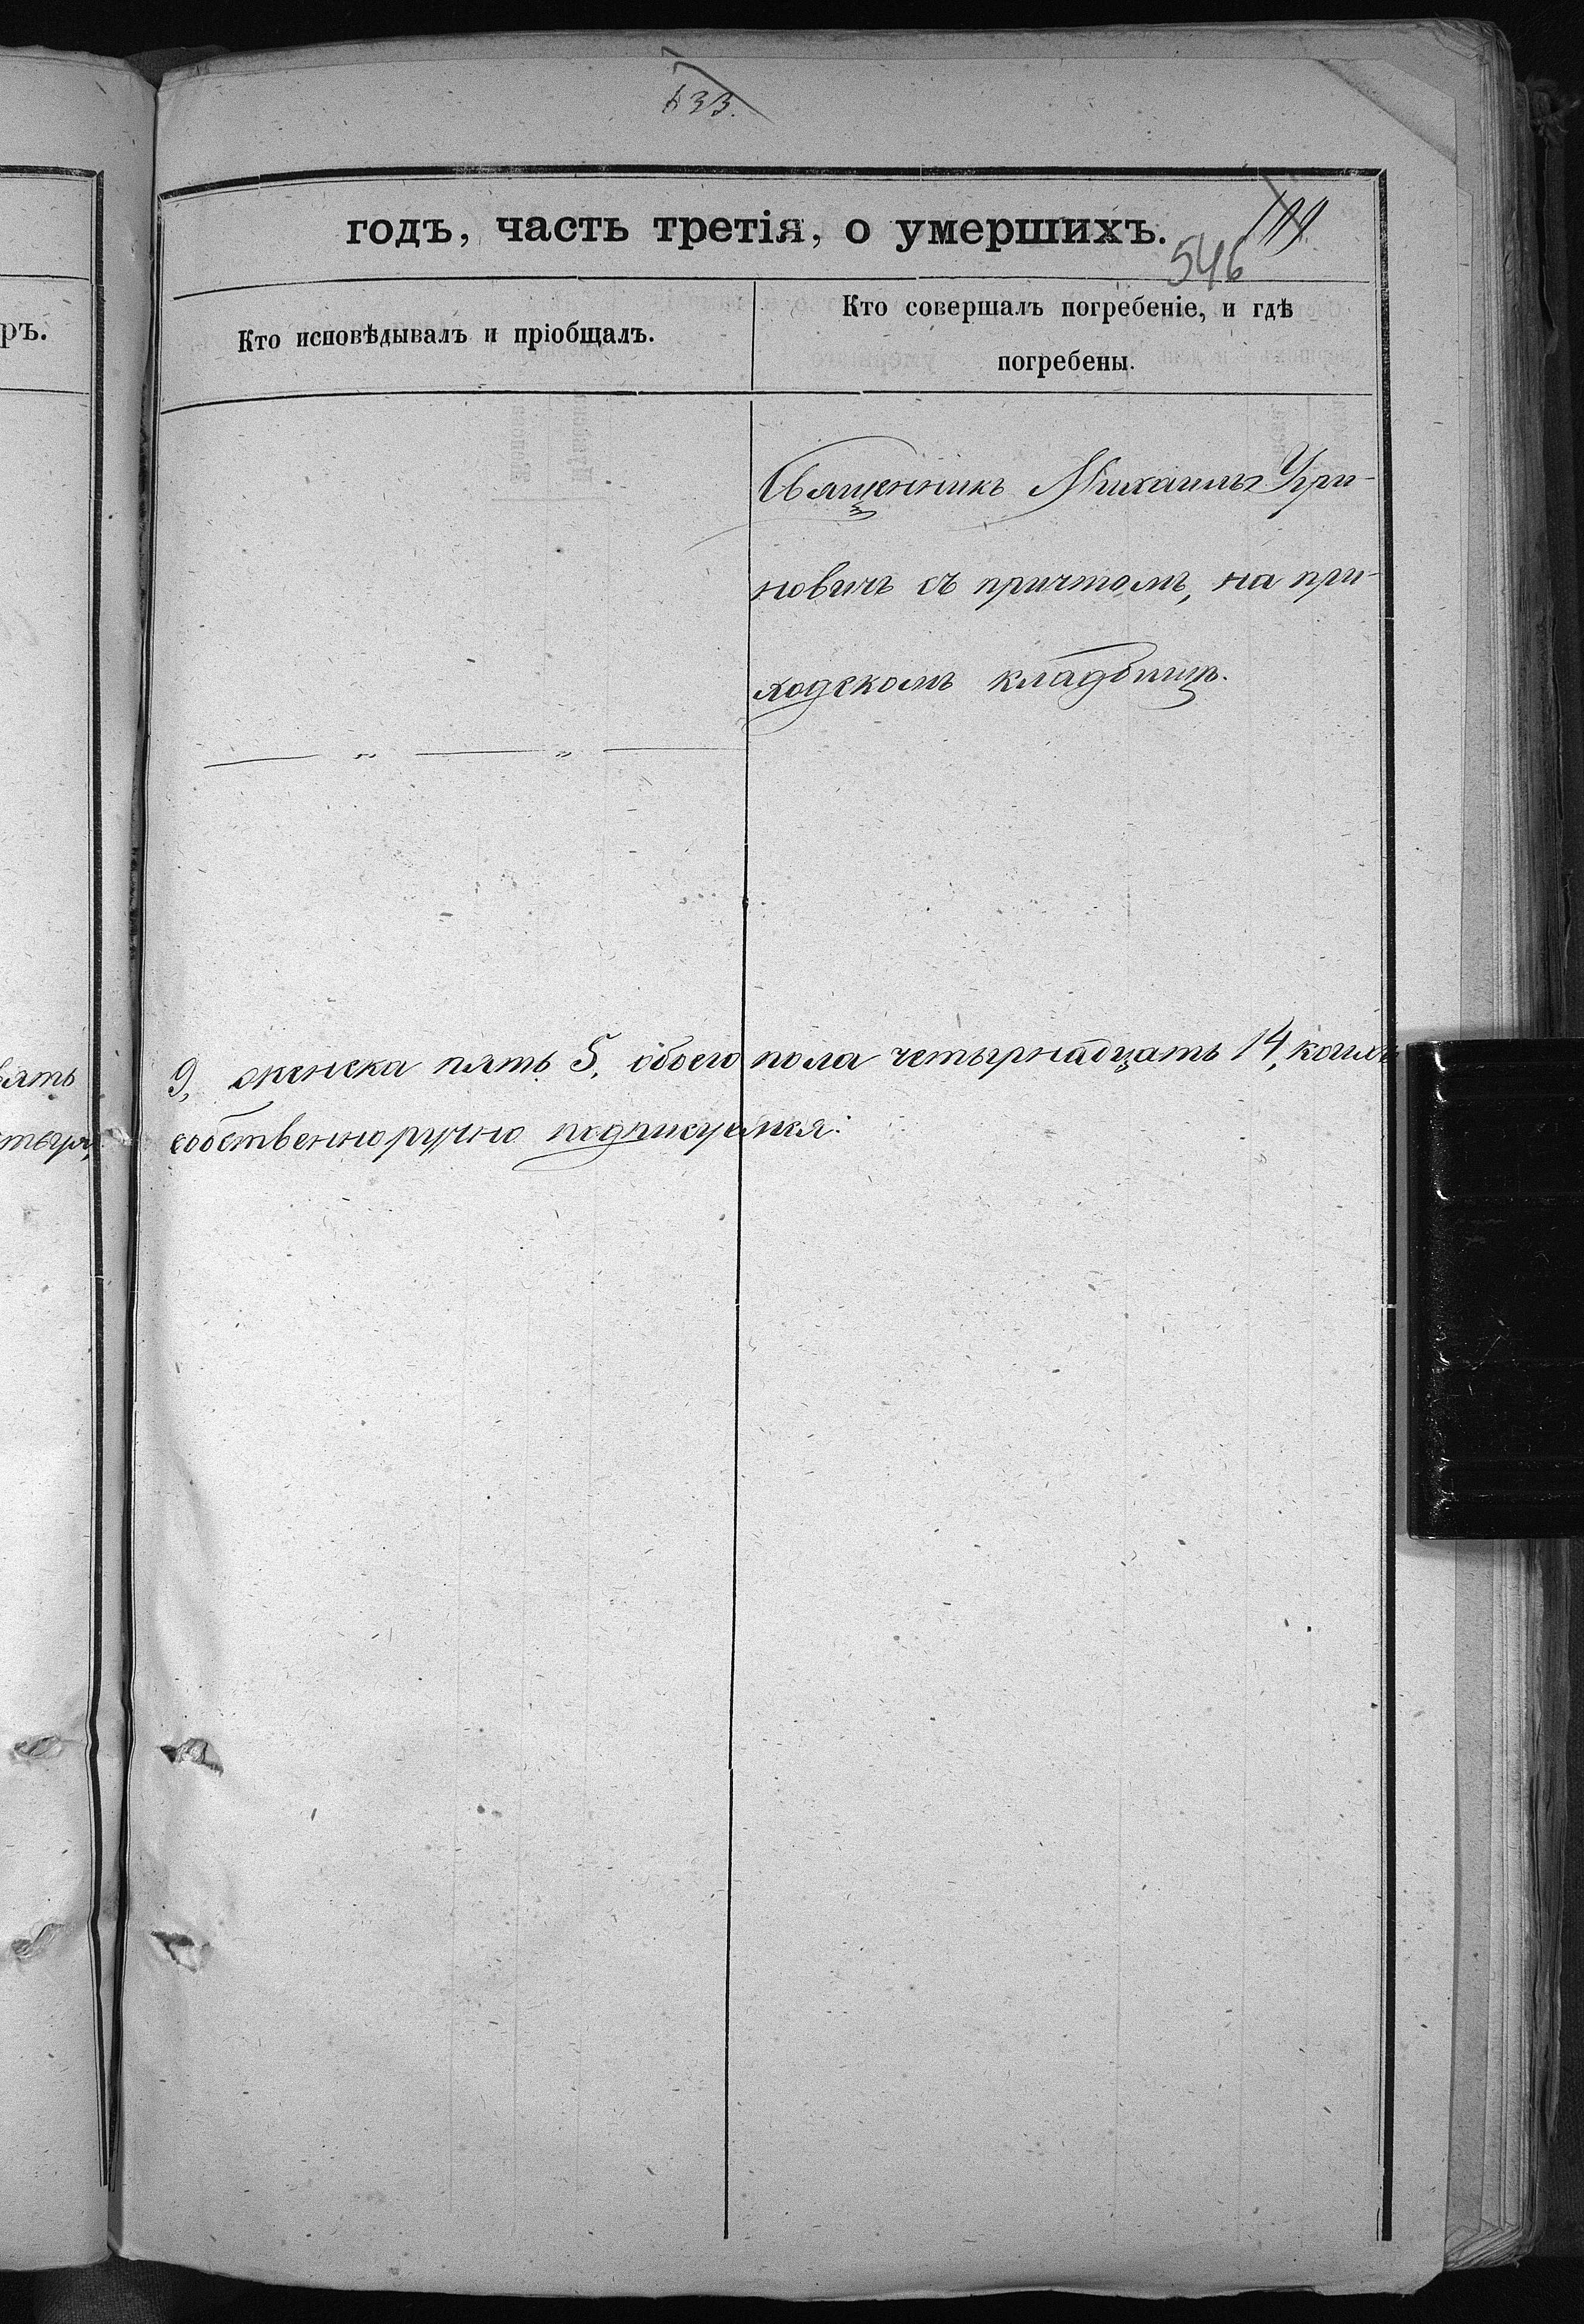 533.
годъ, часть третія, о умершихъ.
546
ръ.
Кто исповѣдывалъ и пріобщалъ.
Кто совершалъ погребеніе, и гдѣ
погребены.
Священникъ Михаилъ Угри-
новичъ съ причтомъ, на при-
ходскомъ кладбищѣ.
9, женска пять 5, обоего пола четырнадцать 14, коимъ
собственноручно подписуемся: